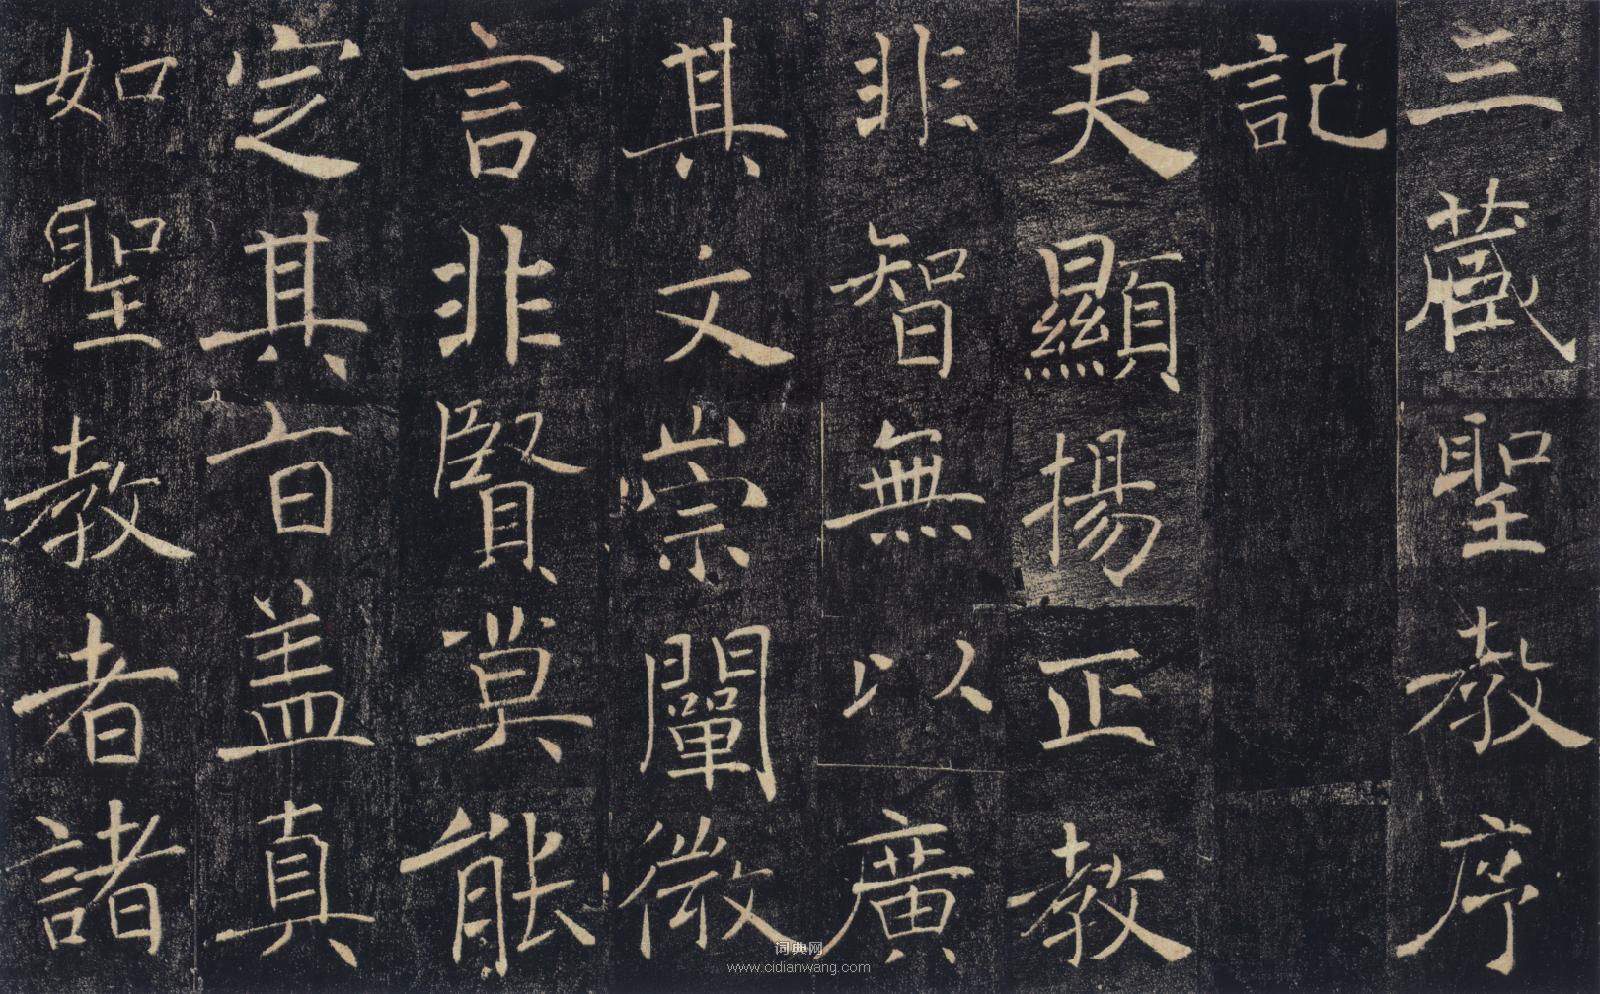 三藏聖教序
記
夫顯揚正教
非智無以廣
其文崇闡微
言非賢莫能
定其旨盖真
如聖教者諸
词典网
www.cidianwang.com